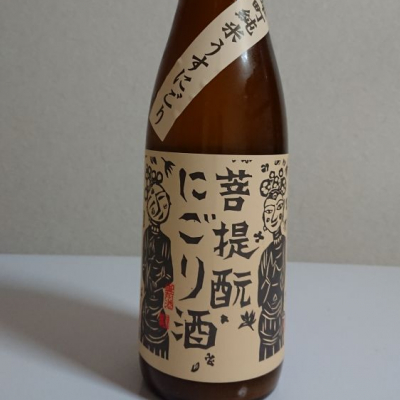 町純米うすにごり
菩提酛
にごり酒